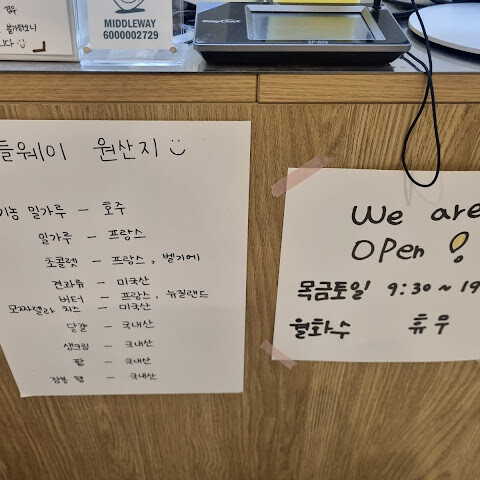 MIDDLEWAY
6000002729
들웨이 원산지
기농 밀가루 - 호주
밀가루 - 프랑스
초콜렛 - 프랑스, 벨기에
견과류 - 미국산
버터 - 프랑스, 뉴질랜드
모짜렐라 치즈 - 미국산
달걀 - 국내산
생크림 - 국내산
팥 - 국내산
잠봉 햄 - 국내산
We are
OPen !
목금토일 9:30 ~ 19
월화수 휴무